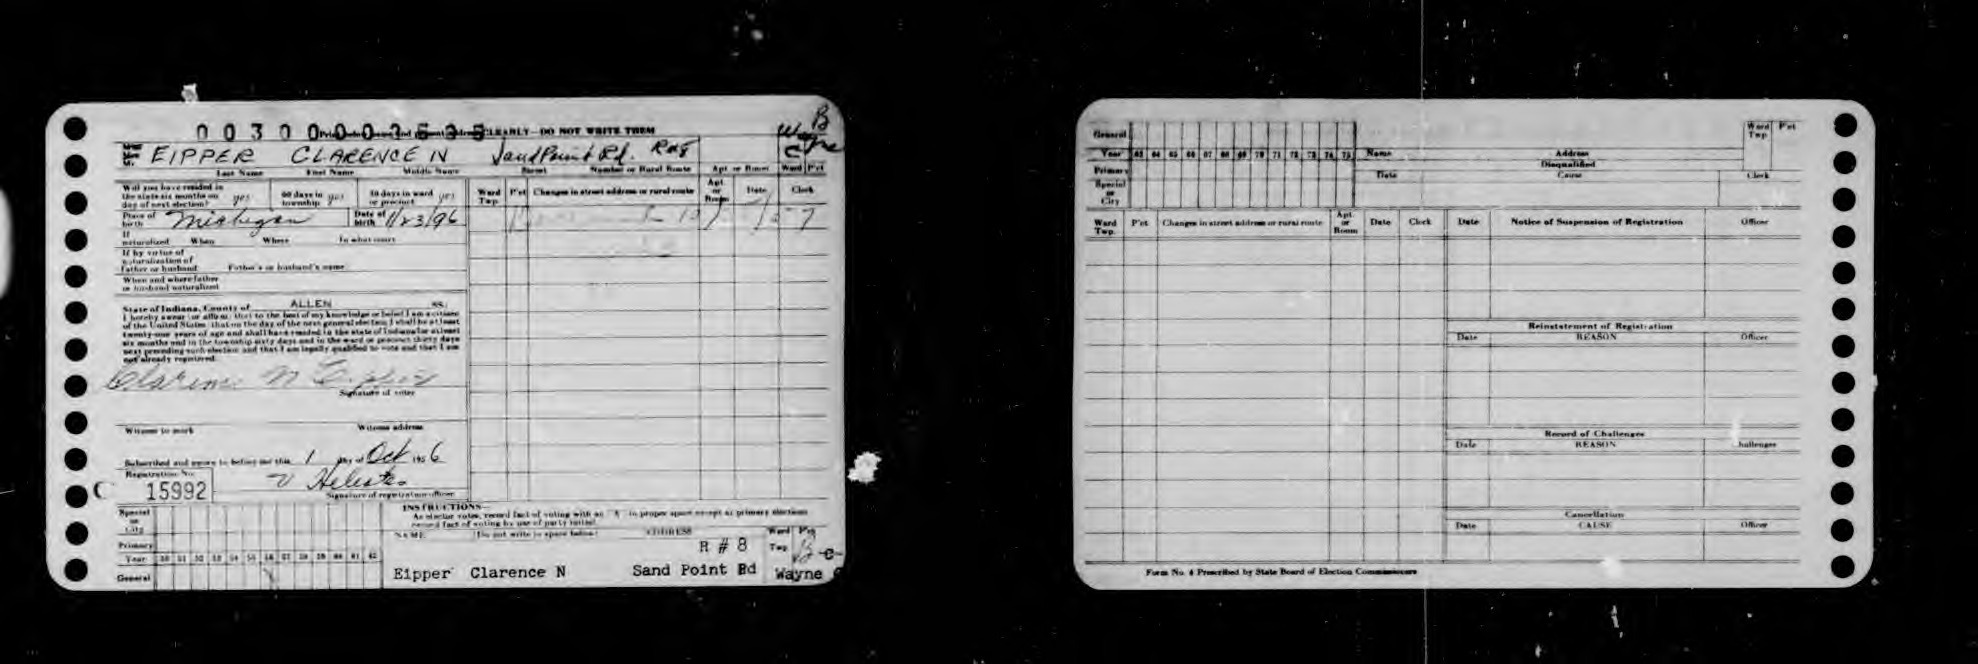 0 0 3 0 0 0 0 3 5 3 5 CLEARLY—DO NOT WRITE THEM
B
EIPPER CLARENCE N Sand Point Rd. R#8 Wayne C
Last Name First Name Middle Name Street Number or Rural Route Apt or Room Ward P'ct
Will you have resided in the state six months on day of next election? yes 60 days in township yes 30 days in ward or precinct yes
Ward Twp. P'ct Changes in street address or rural route Apt. or Room Date Clerk
Place of birth Michigan Date of birth 1/23/96
If naturalized When Where In what court
If by virtue of naturalization of father or husband Father's or husband's name
When and where father or husband naturalized
State of Indiana, County of ALLEN SS:
I hereby swear or affirm that to the best of my knowledge or belief I am a citizen
of the United States that on the day of the next general election I shall be at least
twenty-one years of age and shall have resided in the state of Indiana for at least
six months and in the township sixty days and in the ward or precinct thirty days
next preceding such election and that I am legally qualified to vote and that I am
not already registered.
Clarence N Eipper
Signature of voter
Witness to mark Witness address
Subscribed and sworn to before me this 1 day of Oct 1956
Registration No.
C 15992
Signature of registration officer
INSTRUCTIONS—
As elector votes, record fact of voting with an "X" in proper space except at primary elections
record fact of voting by use of party initial.
Special or City
NAME (Do not write in space below) ADDRESS Ward Twp P'ct
Primary
Year 50 51 52 53 54 55 56 57 58 59 60 61 62
General
R # 8
Eipper Clarence N Sand Point Rd Wayne
General
Year 63 64 65 66 67 68 69 70 71 72 73 74 75
Primary
Special or City
Name Address Ward Twp P'ct
Disqualified
Date Cause Clerk
Ward Twp. P'ct Changes in street address or rural route Apt. or Room Date Clerk
Date Notice of Suspension of Registration Officer
Reinstatement of Registration
Date REASON Officer
Record of Challenges
Date REASON Challenger
Cancellation
Date CAUSE Officer
Form No. 4 Prescribed by State Board of Election Commissioners